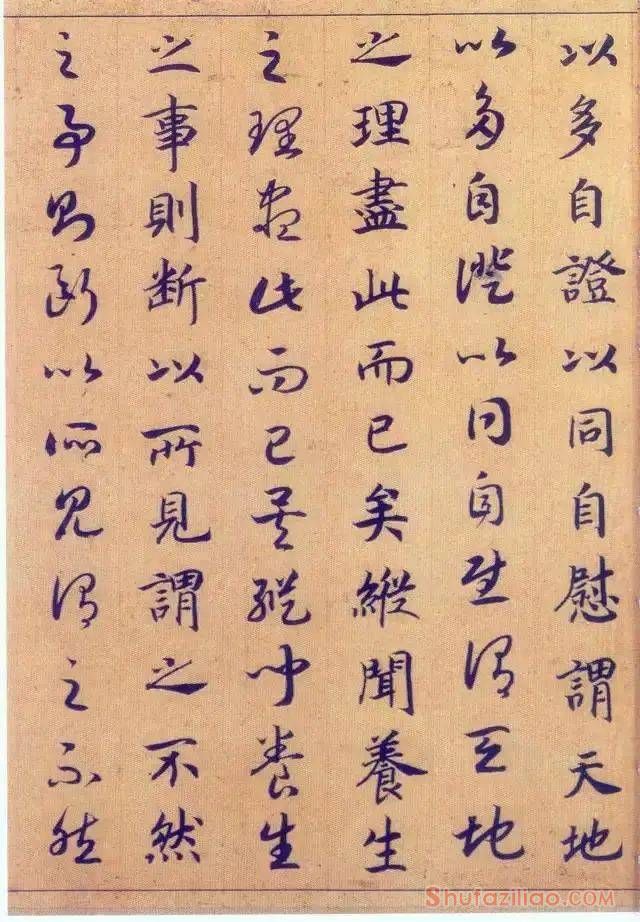 以多自證以同自慰謂天地
以多自證以同自慰謂天地
之理盡此而已矣縱聞養生
之理盡此而已矣縱聞養生
之事則断以所見謂之不然
之事則断以所見謂之不然
Shufaziliao.com